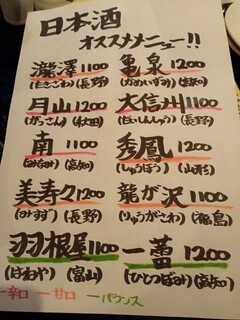 日本酒
オススメニュー!!
瀧澤 1100 亀泉 1200
(たきざわ)(長野) (かめいずみ)(高知)
月山 1200 大信州 1100
(がっさん)(秋田) (だいしんしゅう)(長野)
南 1100 秀鳳 1200
(みなみ)(高知) (しゅうほう)(山形)
美寿々 1200 龍が沢 1100
(みすず)(長野) (りゅうがさわ)(福島)
羽根屋 1100 一蕾 1200
(はねや)(富山) (ひとつぼみ)(高知)
ー辛口 ー甘口 ーバランス